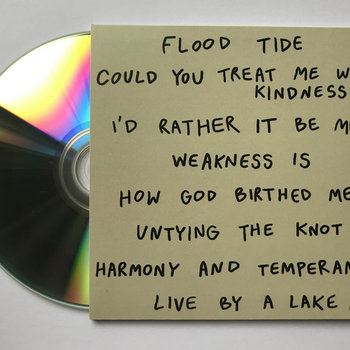 FLOOD TIDE
COULD YOU TREAT ME W
KINDNESS
I'D RATHER IT BE M
WEAKNESS IS
HOW GOD BIRTHED ME
UNTYING THE KNOT
HARMONY AND TEMPERAN
LIVE BY A LAKE